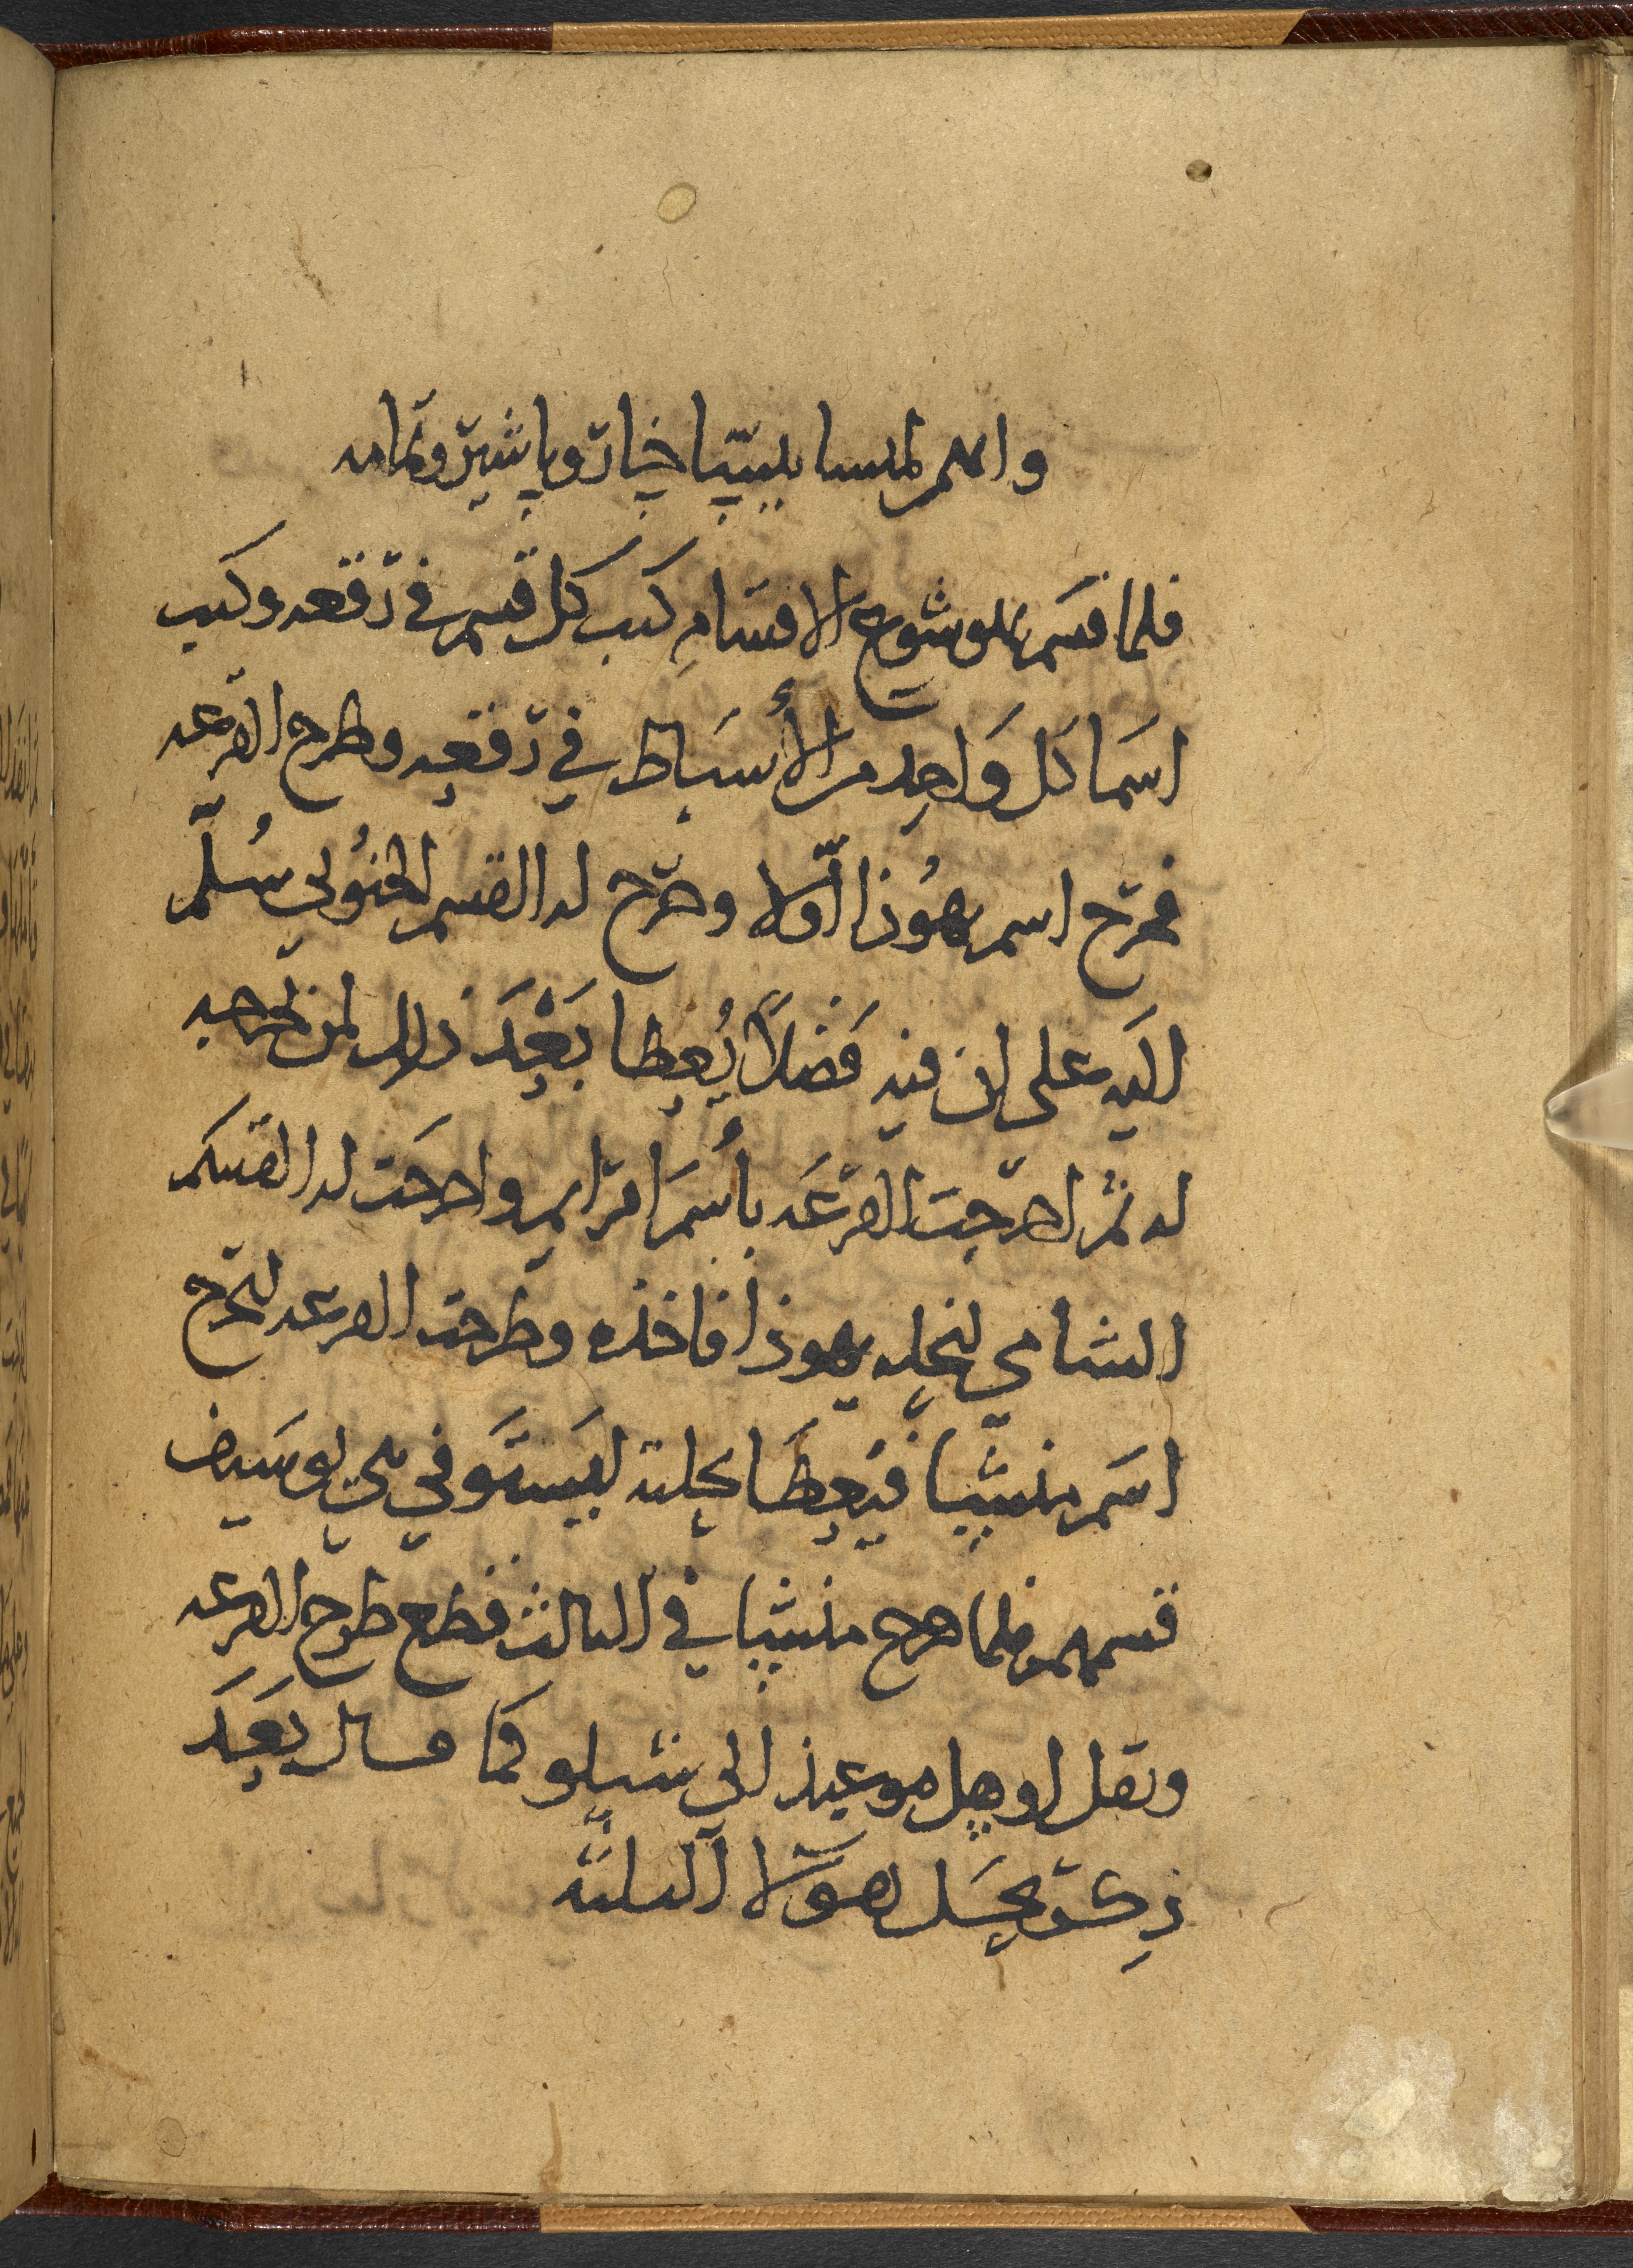 فلما قسم يهوشوع الاقسام كتب كل قسم في رقعه وكتب
اسما كل واحد من الأسباط في رقعه وطرح القرعه
فخرج اسم يهوذا اولا وخرج له القسم الجنوبي سلم
اليه على ان فيه فضلا يعطا بعد ذلك لمن يخرجه
له ثم اخرجت القرعه باسم افرايم واخرجت له القسم
الشامي يهوذا فاخذه وطرحت القرعه لتخرج
اسم منشا فيعطا ليستوفي بني يوسيف
قسمهم فلما خرج منشا في الثالث قطع طرح القرعه
ونقل اوهل موعيذ الى شيلو كما قال بعد
ذكره لهولا الثلثه